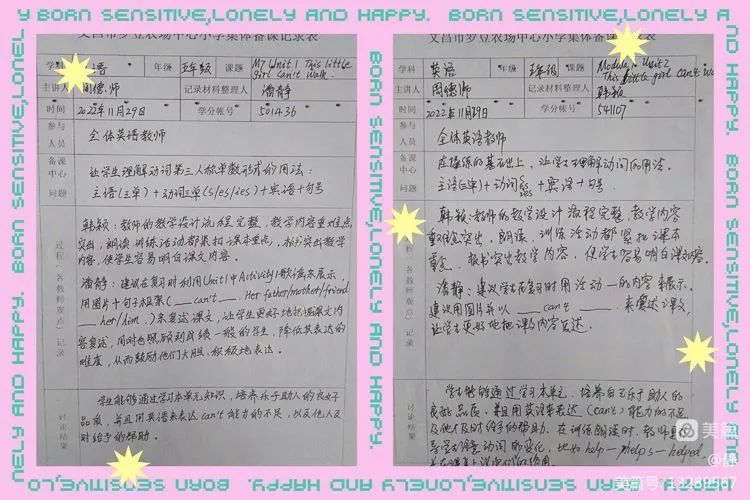 Y BORN SENSITIVE,LONELY AND HAPPY. BORN SENSITIVE,LONELY A
文昌市罗豆农场中心小学集体备课记录表
学科 语 年级 五年级 课题 M7 Unit 1 This little girl can't walk.
主讲人 周德师 记录材料整理人 潘静
时间 2022年11月29日 学分帐号 501436
参与人员 全体英语教师
备课中心问题 让学生理解动词第三人称单数形式的用法:
主语(三单)+动词三单(s/es/ies)+宾语+句号
过程(各教师观点)记录
韩颖:教师的教学设计流程完整,教学内容重难点
突出,朗读训练活动都紧扣课本重点,板书突出教学
内容,使学生容易明白课文内容。
潘静:建议在复习时利用Unit1中Activity1歌谣来展示,
用图片+句子框架(___can't___. Her father/mother/friend
___her/him.)来复述课文,让学生更好地把课文内
容复述,同时也照顾到成绩一般的学生,降低其表达的
难度,从而鼓励他们大胆、积极地表达。
讨论结果
学生能够通过学习本单元知识,培养乐于助人的良好
品质,并且用英语来表达can't能力的不足,以及他人及
时给予的帮助。
学科 英语 年级 五年级 课题 Module 7 Unit2 This little girl can't wa
主讲人 周德师 记录材料整理人 韩颖
时间 2022年11月29日 学分帐号 541107
参与人员 全体英语教师
备课中心问题 在操练的基础上,让学生理解动词的用法。
主语(三单)+动词 s es ies +宾语+句号.
韩颖:教师的教学设计流程完整,教学内容
重难点突出,朗读、训练活动都紧扣课本
重点,板书突出教学内容,使学生容易明白课文内容。
潘静:建议学生在复习时用活动一的内容来展示。
建议用图片并以___can't___.来复述课文,
让学生更好地把课文内容表达。
讨论结果
学生能够通过学习本单元,培养自己乐于助人的
良好品质,并且用英语来表达(can't)能力的不足,
及他人及时给予的帮助。在训练朗读时,教师
导学生注意动词的变化,比如help—helps—helped.
美篇
@静
美篇号:13289567
BORN SENSITIVE,LONELY AND HAPPY.